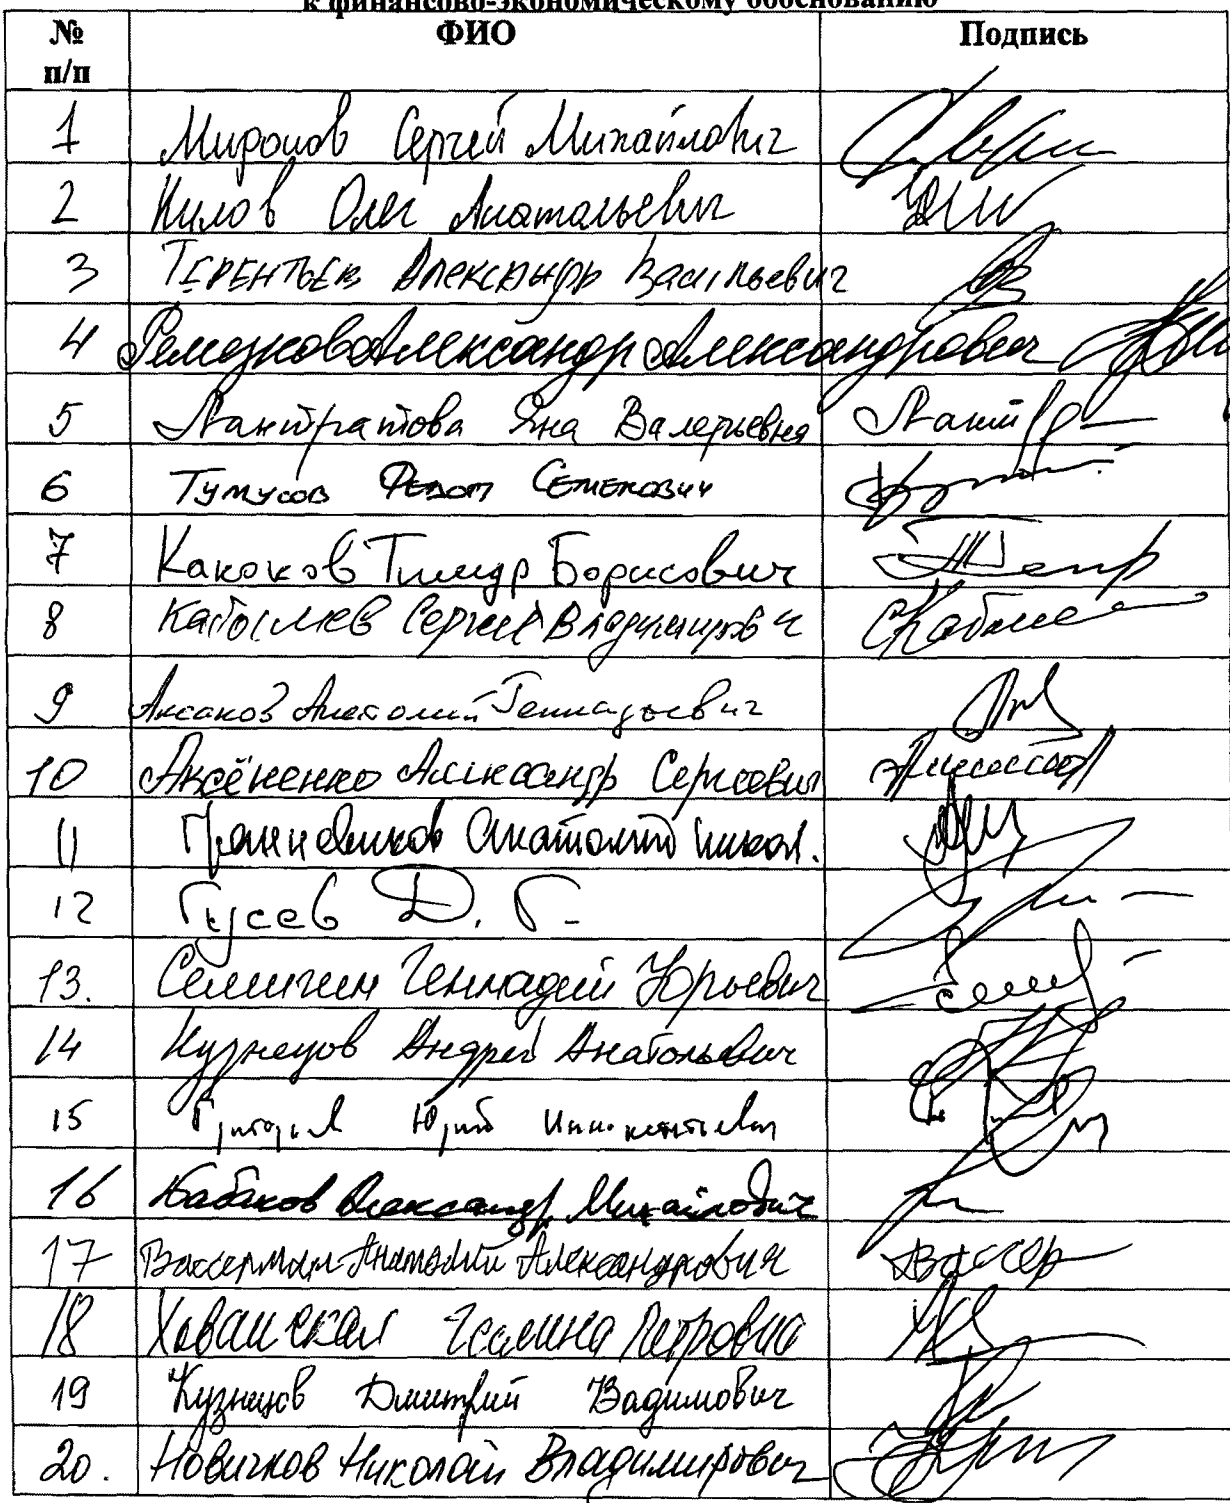 к финансово-экономическому обоснованию
№ п/п ФИО Подпись
1 Миронов Сергей Михайлович
2 Нилов Олег Анатольевич
3 Терентьев Александр Васильевич
4 Ремезков Александр Александрович
5 Лантратова Яна Валерьевна Лант
6 Тумусов Федот Семенович
7 Каноков Тимур Борисович
8 Кабышев Сергей Владимирович Кабыше
9 Аксаков Анатолий Геннадьевич
10 Аксёненко Александр Сергеевич
11 Грешневиков Анатолий Никол.
12 Гусев Д. Г.
13. Семигин Геннадий Юрьевич
14 Кузнецов Андрей Анатольевич
15 Григорьев Юрий Иннокентьевич
16 Бабаков Александр Михайлович
17 Вассерман Анатолий Александрович Вассер
18 Хованская Галина Петровна
19 Кузнецов Дмитрий Вадимович
20. Новичков Николай Владимирович